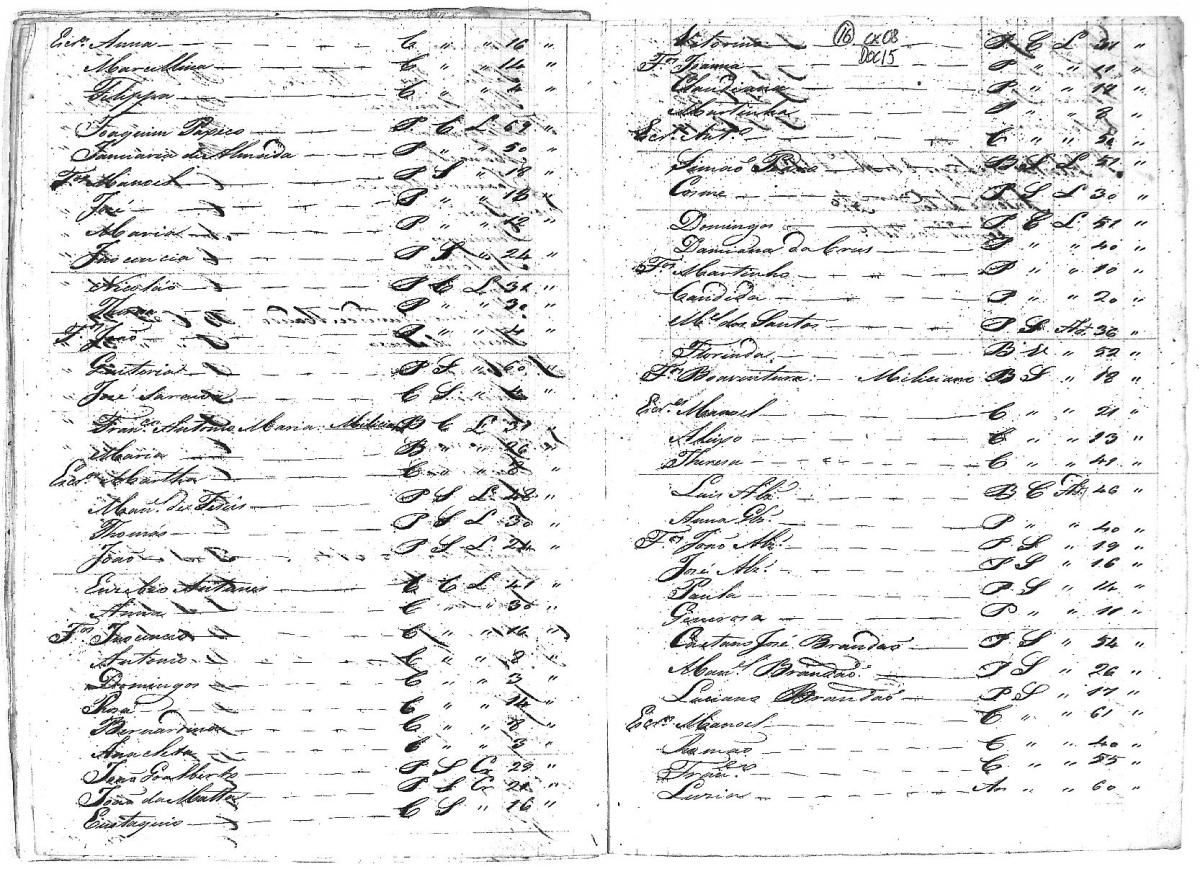 Escr.ª Anna C " " 16 "
Marcellina C " " 14 "
Filippa C " " 4 "
Joaquim P C L 69 "
Januaria de Almeida P " " 50 "
F.os Manoel P S " 18 "
José P " " 18
Maria P " " 12 "
Inocencia P S " 24 "
Nicoláo P C L 32 "
P " " 30 "
F.º João P " " 4 "
Quiteria P S L 60
José C S "
Fran.co Antonio Maria Milician B C L 37 "
Maria B " " 26
Escr.ª Martha C " "
Man.el de Jesus P S L 48 "
Thomás P S L 30 "
João P S L 24 "
Euzebio Antunes C C L 41 "
Anna C " " 30 "
F.os Inocencio C " " 16
Antonio C " " 8
Domingos C " " 3 "
Rosa C " " 14
Bernardina C " " 8
Anacleta C " " 3
João Goalberto P S Ca 29 "
João da Matta P S Ca 21 "
Eustaquio C S " 16 "
16 CX08
DOC15
Vitorino P C L 41 "
F.os Joanna P " " 11 "
Claudiana P " " 12 "
Martinha P " " 2 "
Escr.º Ant.º C "
Simão B S L 52 "
Cosme P S L 30 "
Domingos P C L 51 "
Damiana da Crus P " " 40 "
F.os Martinho P " " 10 "
Candida P " " 20 "
M.el dos Santos P S 36 "
Florinda B V " 52 "
F.os Boaventura Miliciano B S " 18 "
Escr.os Manoel C " " 21 "
Aleixo C " " 13 "
Theresa C " " 49 "
Luis Alz B C 46 "
Anna P " " 40 "
F.os João Alz P S " 19 "
José Alz P S " 16 "
Paula P S " 14 "
Generosa P " " 11 "
Caetano José Brandaõ P S " 54 "
Man.el Brandaõ P S " 26 "
Luciano Brandaõ P S " 17 "
Escr.os Manoel C " " 61 "
C " " 40 "
Fran.co C " " 55 "
An " " 60 "